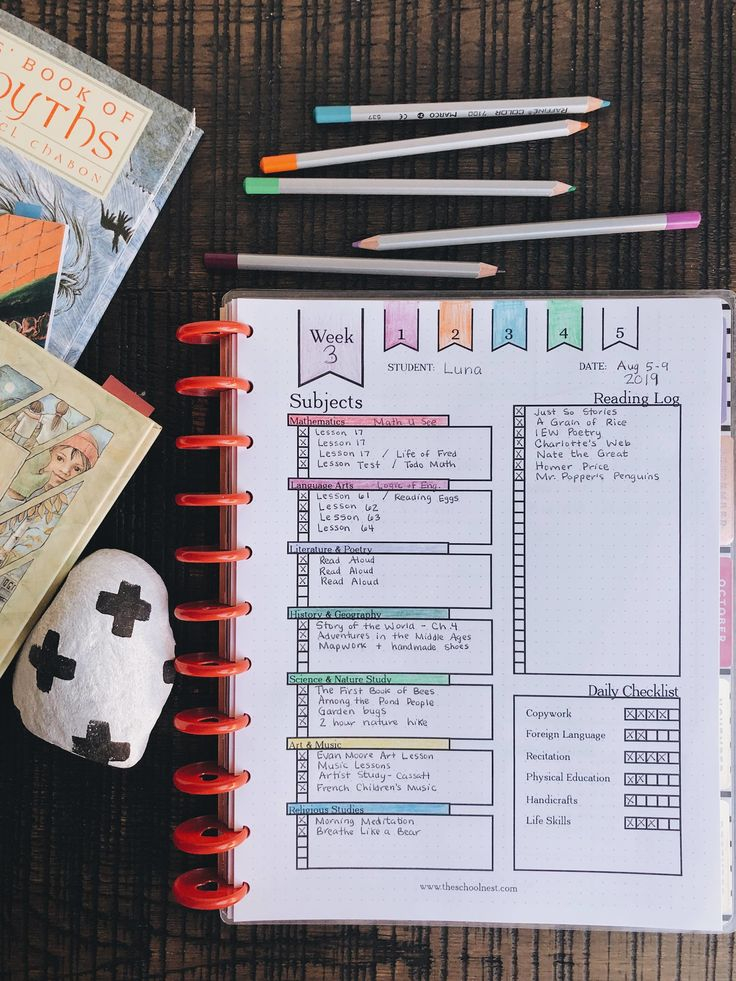 S' BOOK OF
MYTHS
EL CHABON
MARCO RAFFINÉ COLOR 7100
537
Week
3
1
2
3
4
5
STUDENT: Luna
DATE: Aug 5-9
2019
Subjects
Mathematics Math U See
X Lesson 17
X Lesson 17
X Lesson 17 / Life of Fred
X Lesson Test / Todo Math
Language Arts Logic of Eng.
X Lesson 61 / Reading Eggs
X Lesson 62
X Lesson 63
X Lesson 64
Literature & Poetry
X Read Aloud
X Read Aloud
X Read Aloud
History & Geography
X Story of the World - Ch.4
X Adventures in the Middle Ages
X Mapwork + handmade shoes
Science & Nature Study
X The First Book of Bees
X Among the Pond People
X Garden bugs
X 2 hour nature hike
Art & Music
X Evan Moore Art Lesson
X Music Lessons
X Artist Study - Cassatt
X French Children's Music
Religious Studies
X Morning Meditation
X Breathe Like a Bear
Reading Log
X Just So Stories
X A Grain of Rice
X IEW Poetry
X Charlotte's Web
X Nate the Great
X Homer Price
X Mr. Popper's Penguins
Daily Checklist
Copywork X X X X
Foreign Language X X
Recitation X X X X
Physical Education X X
Handicrafts X
Life Skills X X X
www.theschoolnest.com
OCTOBER